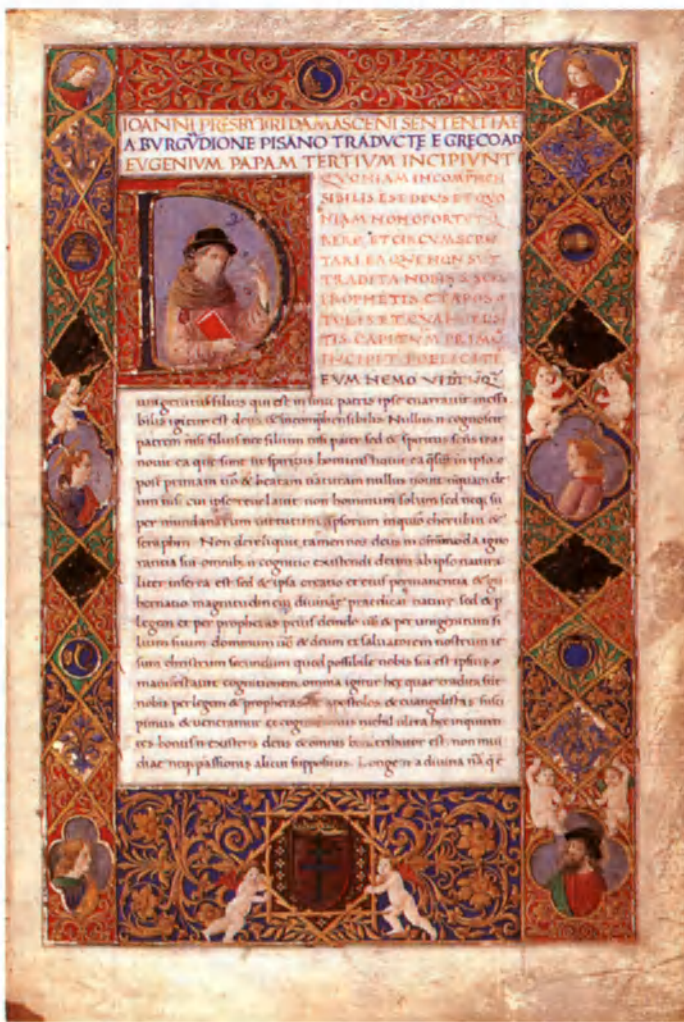 IOANNI PRESBYTERI DAMASCENI SENTENTIAE
A BVRGVDIONE PISANO TRADVCTE E GRECO AD
EVGENIVM PAPAM TERTIVM INCIPIVNT
QVONIAM INCOMPREHEN
SIBILIS EST DEUS ET QVO
NIAM NON OPORTVT Q
RERE ET CIRCVMSCRV
TARI EA QVE NON SVT
TRADITA NOBIS A SCIS
PROPHETIS ET APOS
TOLIS ET EVANGELIS
TIS CAPITVM PRIMV
INCIPIT FELICITE
EVM NEMO VIDIT VNQ
unigenitus filius qui est in sinu patris ipse enarravit ineffa
bilis igitur est deus & incomprehensibilis Nullus n cognoscit
patrem nisi filius nec filium nisi pater sed & spiritus scus ita
novit ea que sunt sicut spiritus hominis novit ea in ipso
post primam & beatam naturam nullus novit unquam de
um nisi cui ipse revelavit non hominum solum sed neq
per mundanarum virtutum ipsorum inquio cherubin &
seraphin Non dereliquit tamen nos deus in omnimoda igno
rantia sui omnibus n cognitio existendi deum ab ipso natura
liter inserta est sed & ipsa creatio et eius permanentia & gu
bernatio magnitudinem divinae praedicat nature sed & p
legem et per prophetas prius deinde & per unigenitum fi
lium suum dominum & deum et salvatorem nostrum ie
sum christum secundum quod possibile nobis sui est ipsius
manifestavit cognitionem omnia igitur hec quae tradita sut
nobis per legem & prophetas & apostolos & evangelistas susci
pimus & veneramur et cognoscimus nichil ultra hec inquiren
tes bonus n existens deus & omnis boni tributor est non
diae neq passionis alicui suppositus Longe n a divina na q e